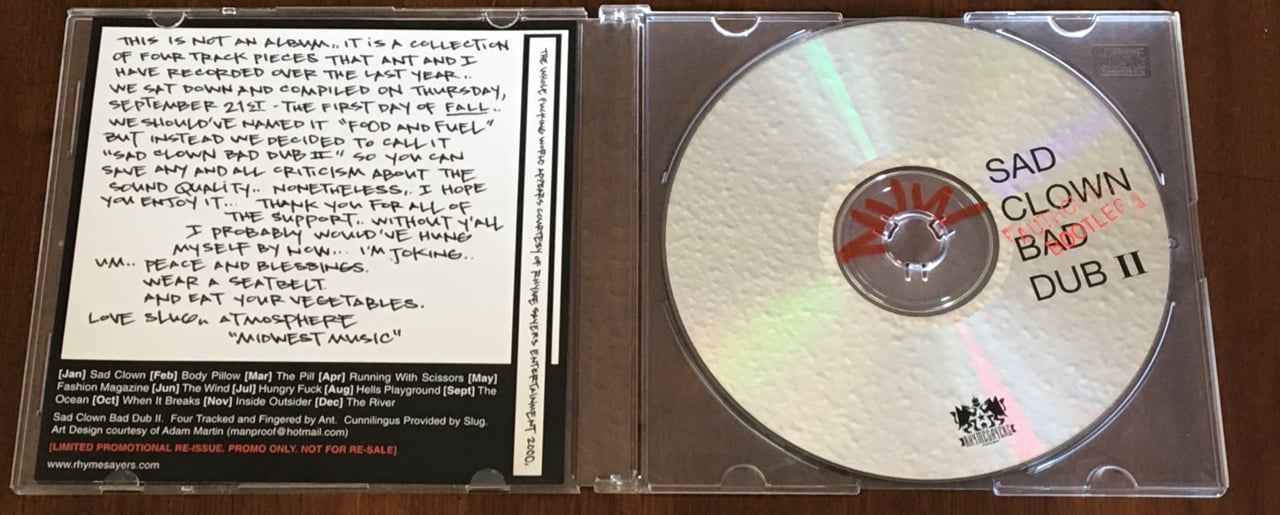 THIS IS NOT AN ALBUM.. IT IS A COLLECTION
OF FOUR TRACK PIECES THAT ANT AND I
HAVE RECORDED OVER THE LAST YEAR..
WE SAT DOWN AND COMPILED ON THURSDAY,
SEPTEMBER 21ST - THE FIRST DAY OF FALL..
WE SHOULD'VE NAMED IT "FOOD AND FUEL"
BUT INSTEAD WE DECIDED TO CALL IT
"SAD CLOWN BAD DUB II" SO YOU CAN
SAVE ANY AND ALL CRITICISM ABOUT THE
SOUND QUALITY.. NONETHELESS,. I HOPE
YOU ENJOY IT... THANK YOU FOR ALL OF
THE SUPPORT.. WITHOUT Y'ALL
I PROBABLY WOULD'VE HUNG
MYSELF BY NOW... I'M JOKING..
UM.. PEACE AND BLESSINGS.
WEAR A SEATBELT.
AND EAT YOUR VEGETABLES.
LOVE SLUG,, ATMOSPHERE
"MIDWEST MUSIC"
THE WHOLE FUCKING WORLD APPEARS COURTESY OF RHYME SAYERS ENTERTAINMENT 2000.
[Jan] Sad Clown [Feb] Body Pillow [Mar] The Pill [Apr] Running With Scissors [May]
Fashion Magazine [Jun] The Wind [Jul] Hungry Fuck [Aug] Hells Playground [Sept] The
Ocean [Oct] When It Breaks [Nov] Inside Outsider [Dec] The River
Sad Clown Bad Dub II. Four Tracked and Fingered by Ant. Cunnilingus Provided by Slug.
Art Design courtesy of Adam Martin (manproof@hotmail.com)
[LIMITED PROMOTIONAL RE-ISSUE. PROMO ONLY. NOT FOR RE-SALE]
www.rhymesayers.com
SAD
CLOWN
BAD
DUB II
BOOTLEG
RHYMESAYERS